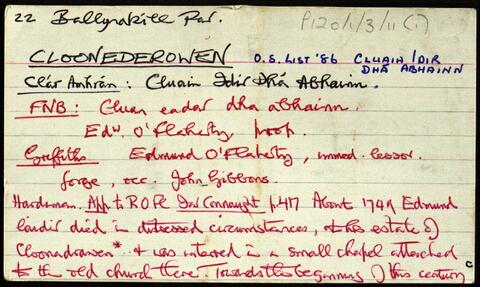 22 Ballynakill Par. P120/1/3/11 (i)
CLOONEDEROWEN O.S. LIST '86 CLUAIN IDIR
DHÁ ABHAINN
Clár Amhráin : Cluain Idir Dhá Abhainn.
FNB : Cluan eadar dha abhainn.
Edw. O'Flaherty prop.
Griffiths Edmund O'Flaherty, immed. lessor.
forge, occ. John Gibbons.
Hardiman. App to ROF Iar Connaught p.417 About 1749 Edmund
laidir died in distressed circumstances, at his estate of
Cloonederowen* & was interred in a small chapel attached
to the old church there. Towards the beginning of this century
C